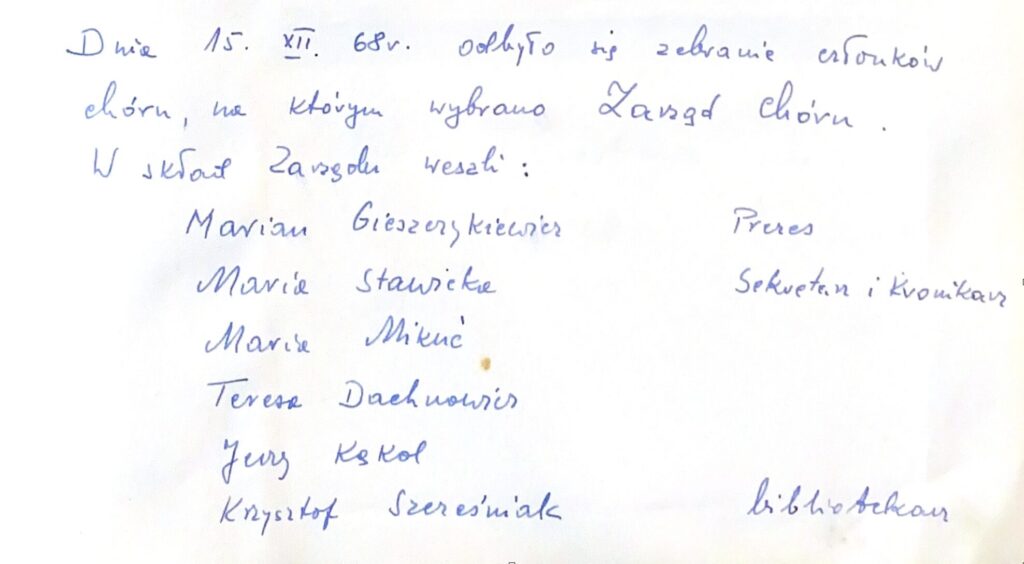 Dnia 15. XII. 68r. odbyło się zebranie członków
chóru, na którym wybrano Zarząd Chóru.
W skład Zarządu weszli:
Marian Gieszczykiewicz Prezes
Maria Stawicka Sekretarz i Kronikarz
Maria Mikuć
Teresa Dachnowicz
Jerzy Kąkol
Krzysztof Sześniak bibliotekarz